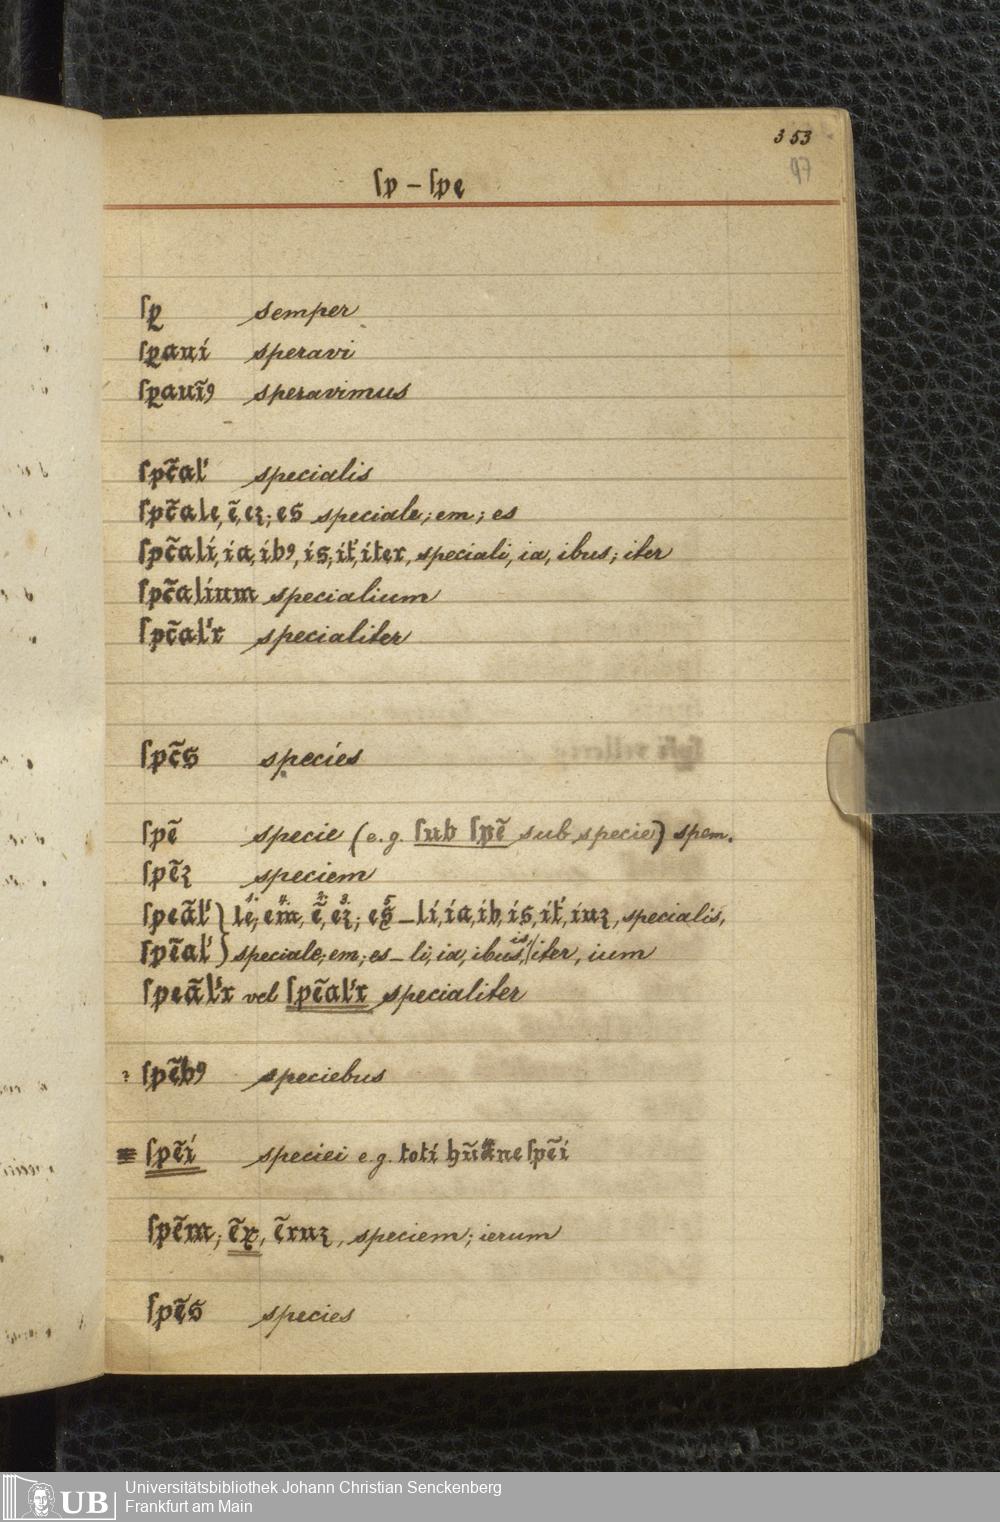 353
97
ſp – ſpe
ſꝑ semper
ſꝑaui speravi
ſꝑauı̃ꝰ speravimus
ſpc̃al' specialis
ſpc̃ale, ẽ, eȝ; es speciale; em; es
ſpc̃ali, ia, ibꝰ, is, it', iter, speciali, ia, ibus; iter
ſpc̃alium specialium
ſpc̃al'r specialiter
ſpc̃s species
ſpẽ specie (e.g. ſub ſpẽ sub specie) spem.
ſpẽȝ speciem
ſpeãl' } 1. le, 4. em, 2. ẽ, 3. eȝ; 5 es – li, ia, ib, is, it', iuȝ, specialis,
ſpẽal' } speciale; em; es – li, ia, ibus, is, iter, ium
ſpeãl'r vel ſpẽal'r specialiter
? ſpẽbꝰ speciebus
ſpẽi speciei e.g. toti hũane ſpẽi
ſpẽm; ẽꝝ, ẽruȝ, speciem; ierum
ſpẽs species
UB Universitätsbibliothek Johann Christian Senckenberg
Frankfurt am Main